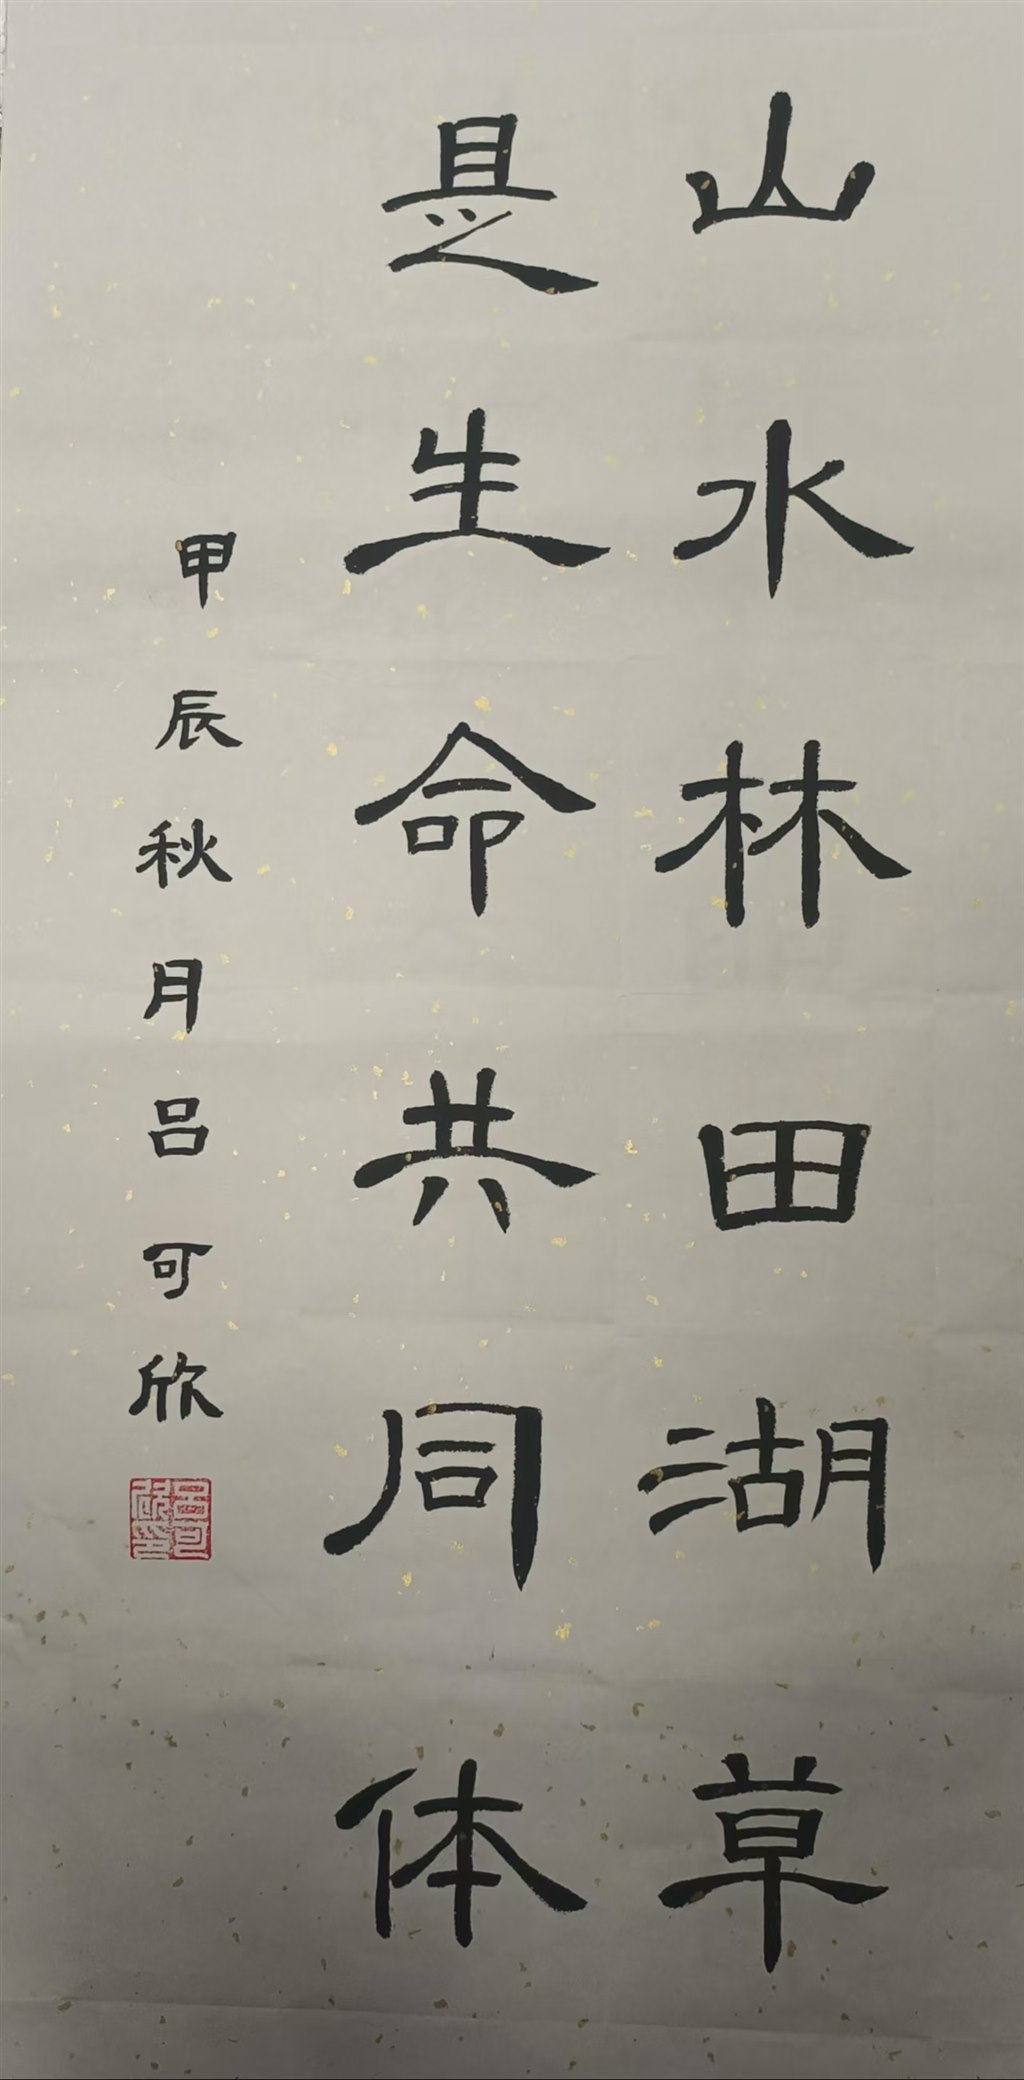 山水林田湖草
是生命共同体
甲辰秋月吕可欣
吕可欣印